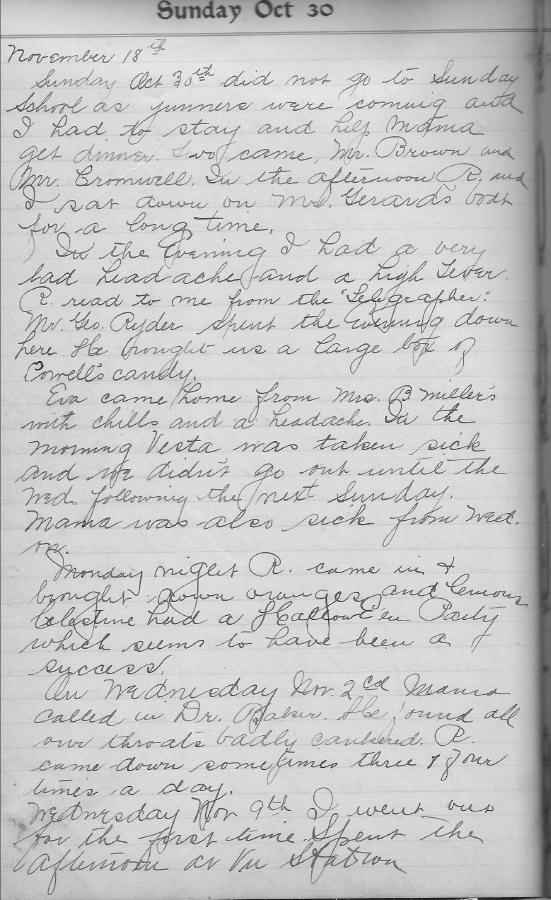 Sunday Oct 30
November 18th
Sunday Oct 30th did not go to Sunday
School as were coming and
I had to stay and help Mama
get dinner. Two came, Mr. Brown and
Mr. Cromwell. In the afternoon R. and
I sat down on Mrs. Gerard's boat
for a long time.
In the Evening I had a very
bad headache and a high fever.
R. read to me from the "Telegrapher".
Mr. Geo. Ryder spent the evening down
here. He brought us a large box of
Powell's candy.
Eva came home from Mrs. B. Miller's
with chills and a headache. In the
morning Vesta was taken sick
and we didn't go out until the
Wed. following the next Sunday.
Mama was also sick from Wed.
on.
Monday night R. came in &
brought down oranges and lemons
Celestine had a Hallow E'en Party
which seems to have been a
success.
On Wednesday Nov. 2cd Mama
called in Dr. Baker. He found all
our throats badly cankered. R.
came down sometimes three & four
times a day.
Wednesday Nov 9th I went out
for the first time. Spent the
afternoon at Station